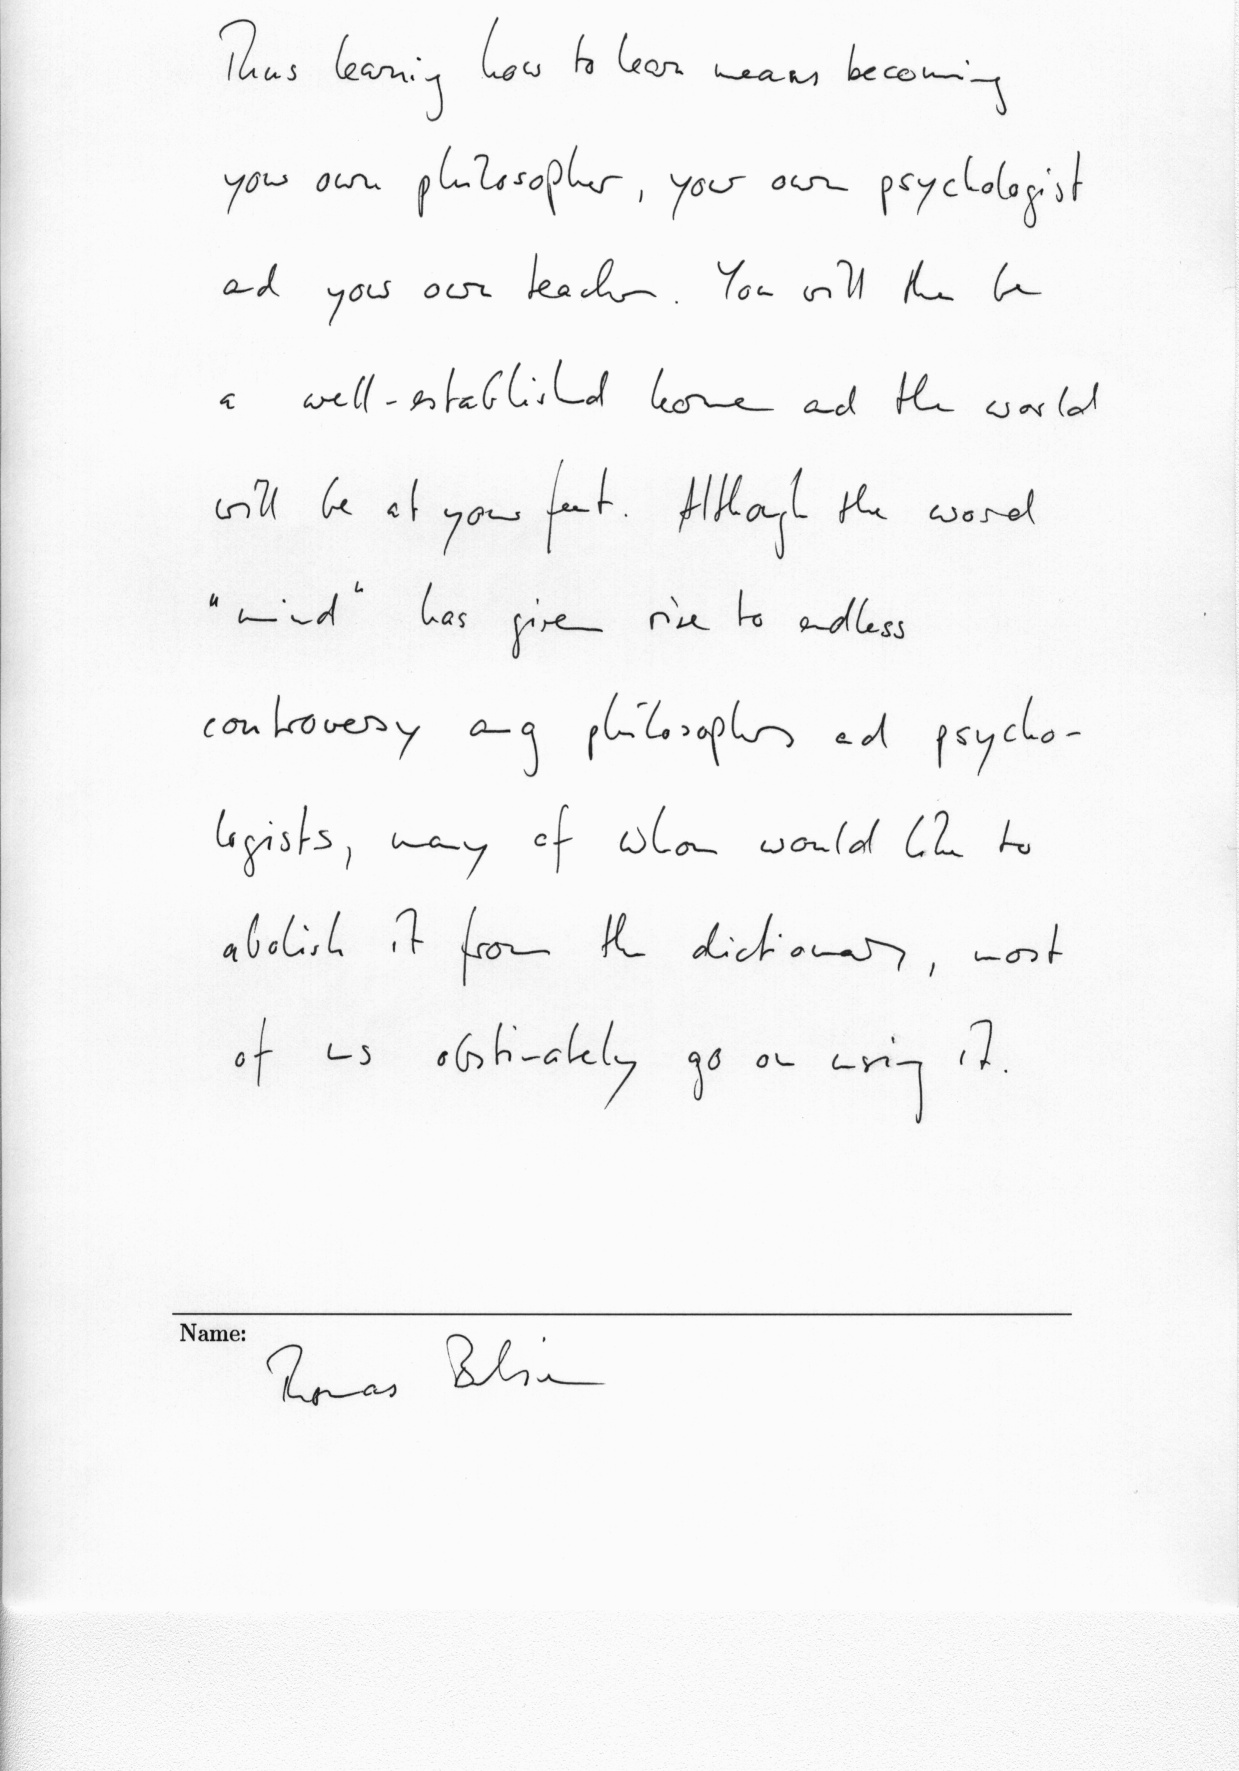 Thus learning how to learn means becoming
your own philosopher, your own psychologist
and your own teacher. You will then be
a well-established home and the world
will be at your feet. Although the word
"mind" has given rise to endless
controversy among philosophers and psycho-
logists, many of whom would like to
abolish it from the dictionary, most
of us obstinately go on using it.
Name:
Thomas